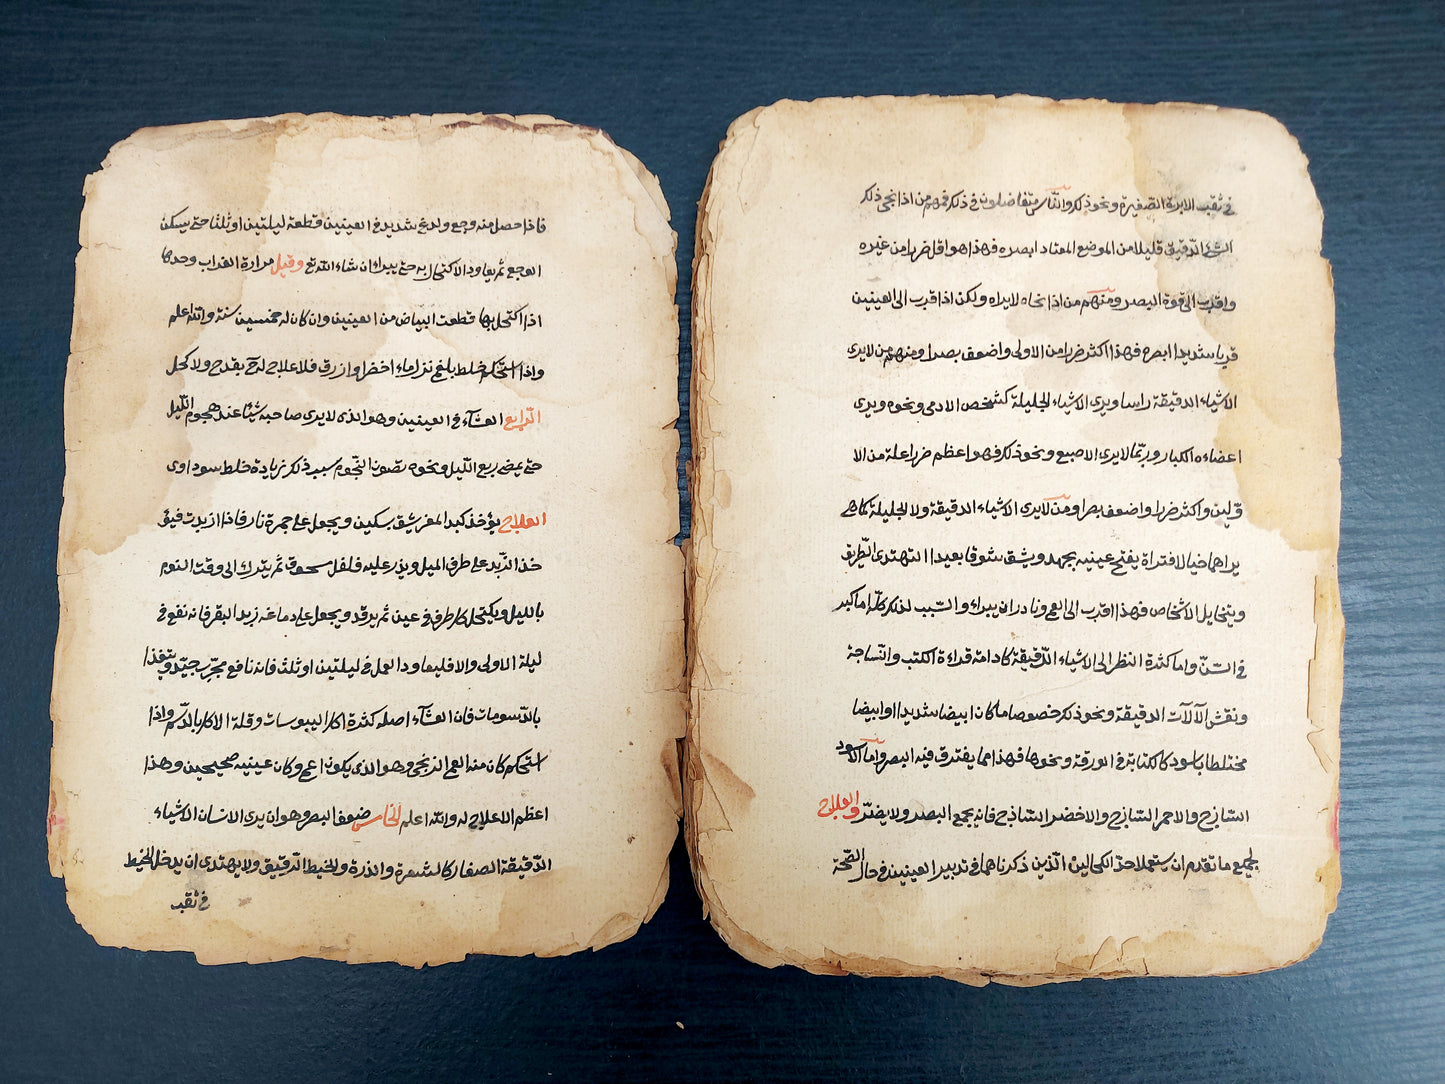 فاذا حصل منه وجع ولدع شديد في العينين وقطعة ليلتين او ثلثا حتى يسكن
الوجع ثم يعاود الاكتحال به حتى يبراء ان شاء الله تع وقيل مرارة الغراب وحدها
اذا اكتحل بها قطعت البياض من العينين وان كان له خمسين سنة والله اعلم
واذا استحكم خلط بلغم نزل ماء اخضر او ازرق فلا علاج له بقدح ولا كحل
الرابع العشآء في العينين وهو الذي لا يرى صاحبه شيئا عند هجوم الليل
حتى يمضي ربع الليل ونحوه سبب ذلك زيادة خلط سوداوى
العلاج يؤخذ كبد المعز يشق بسكين ويجعل على جمرة نار فاذا ازبدت
خذ الزبد على طرف الميل ويذر عليه فلفل مسحوق ثم يترك الى وقت النوم
بالليل ويكتحل كل طرف في عين ثم يرقد ويجعل على دماغه زبد البقر فانه نفع في
ليلة الاولى والا فليعاود العمل في ليلتين او ثلث فانه نافع مجرّب جيّد ويتغذا
بالدسومات فان العشآء اصله كثرة اكل اليبوسات وقلة الاكل بالدسم واذا
استحكم كان منه العمى الزنجى وهو الذى يكون اعمى وكان عينيه صحيحين وهذا
اعظم لا علاج له والله اعلم الخامس ضعف البصر وهو ان يرى الانسان الاشياء
الدقيقة الصغار كالشعرة والذرة والخيط الدقيق ولا يهتدى ان يدخل الخيط
في ثقب
في ثقب الابرة الصغيرة ونحو ذلك والناس متفاضلون في ذلك فمنهم من اذا نحى ذلك
الشئ الدقيق قليلا من الموضع المعتاد ابصره فهذا هو اقل ضررا من غيره
واقرب الى قوة البصر ومنهم من اذا نحاه لا يراه ولكن اذا قرب الى العينين
قربا شديدا ابصره فهذا اكثر ضررا من الاولى واضعف بصرا ومنهم من لا يرى
الاشياء الدقيقة راسا ويرى الاشياء الجليلة كشخص الادمى ونحوه ويرى
اعضاءه الكبار وربّما لا يرى الاصبع ونحو ذلك فهو اعظم ضررا علة من الا
وّلين واكثر ضررا واضعف بصرا ومن لا يرى الاشياء الدقيقة ولا الجليلة كما هى
يراها خيالا فتراه يفتح عينيه بجهد ويشق شوقا بعيدا اتهتدى الطريق
ويتخايل الاشخاص فهذا اقرب الى العمى ونادر ان يبراء والسّبب لذلك كلّه اما كبر
في السّنّ واما كثرة النظر الى الاشياء الدّقيقة كادامة قراءة الكتب والنساجة
ونقش الآلات الدقيقة ونحو ذلك خصوصا ما كان ابيضا شديدا او ابيضا
مختلطا باسود كالكتابة في الورقة ونحوها فهذا مما يفترق فيه البصر واما الاسود
السّاذج والاحمر السّاذج والاخضر السّاذج فانه يجمع البصر ولا يضرّ والعلاج
لجميع ما تقدم ان يستعملا احد الكحالين الّذين ذكرناهما في تدبير العينين في حال الصّحة